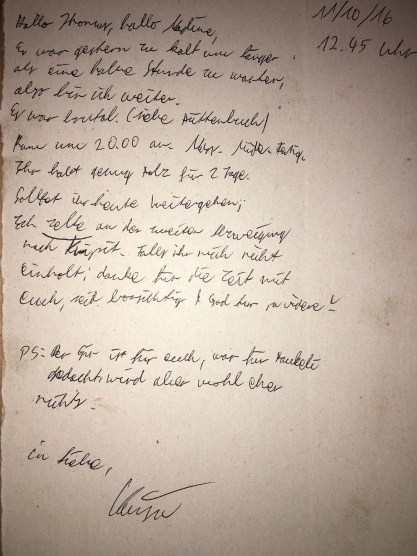 11/10/16
12.45 Uhr
Hallo Thomas, hallo
Es war gestern zu kalt um länger
als eine halbe Stunde zu warten,
also bin ich weiter.
Es war brutal. (siehe Hüttenbuch)
Kam um 20.00 an.
Ihr habt genug Holz für 2 Tage.
Solltet ihr heute weitergehen;
Ich zelte an der zweiten
nach Falls ihr mich nicht
einholt; danke für die Zeit mit
euch, seid vorsichtig &
PS: Der ist für euch, war für
gedacht wird aber wohl eher
nichts
in Liebe,